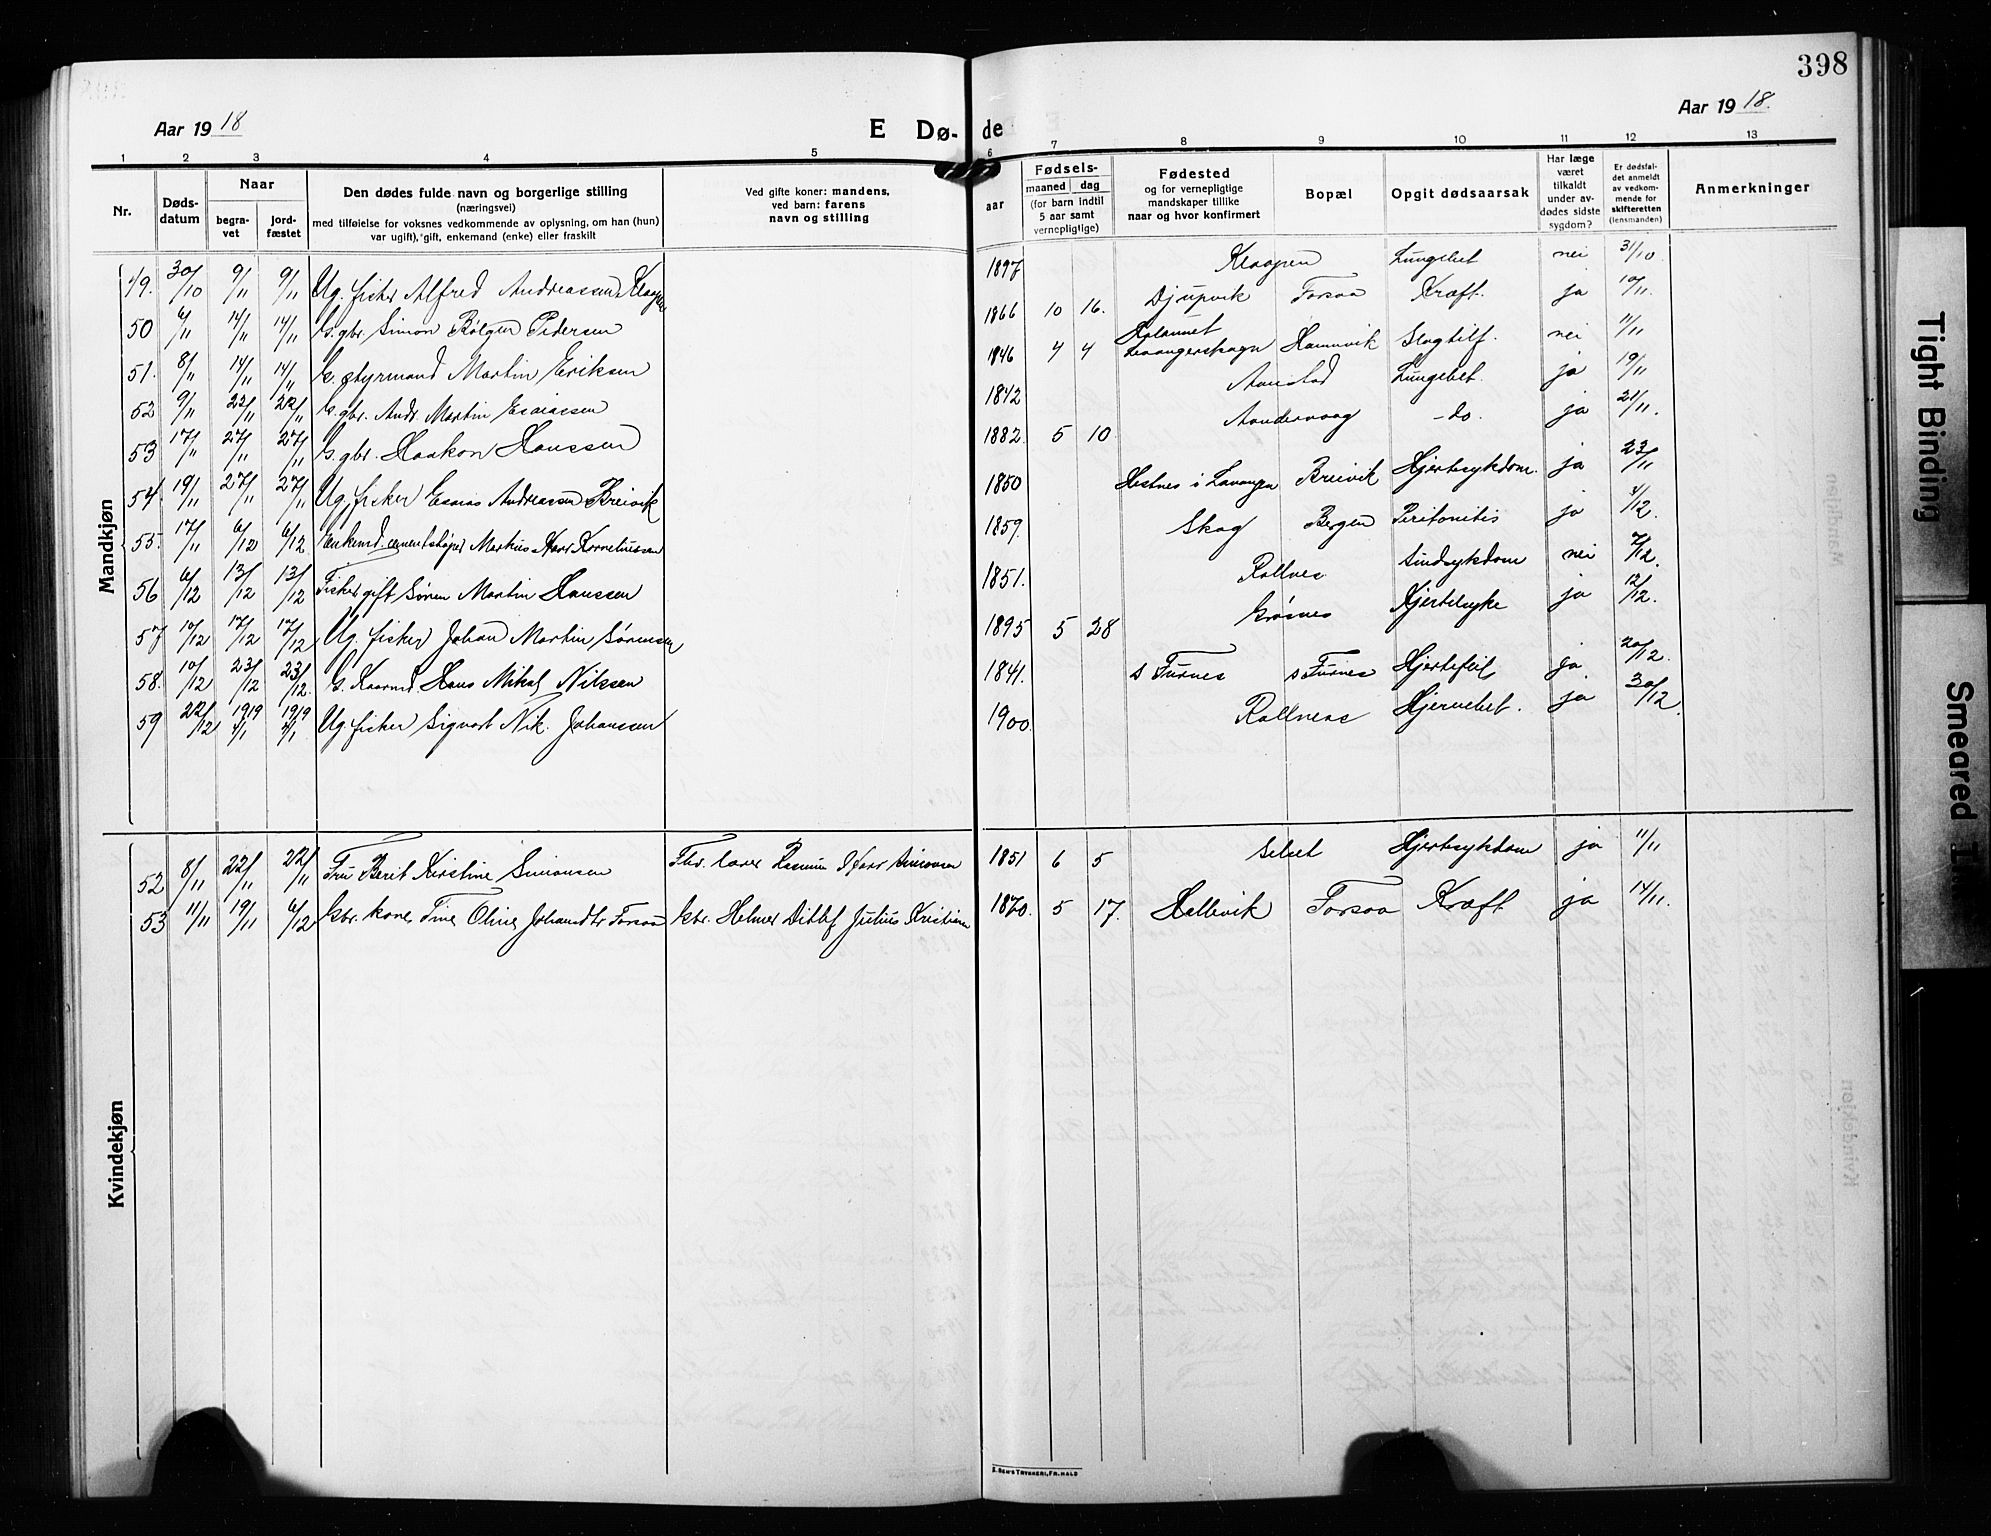 398
Aar 1918
E Dø-
de
Aar 1918.
1 2 3 4 5 6 7 8 9 10 11 12 13
Nr.
Døds-
datum
Naar
begra-
vet
jord-
fæstet
Den dødes fulde navn og borgerlige stilling
(næringsvei)
med tilføielse for voksnes vedkommende av oplysning, om han (hun)
var ugift, gift, enkemand (enke) eller fraskilt
Ved gifte koner: mandens,
ved barn: farens
navn og stilling
Fødsels-
aar
maaned dag
(for barn indtil
5 aar samt
vernepligtige)
Fødested
og for vernepligtige
mandskaper tillike
naar og hvor konfirmert
Bopæl
Opgit dødsaarsak
Har læge
været
tilkaldt
under av-
dødes sidste
sygdom?
Er dødsfal-
det anmeldt
av vedkom-
mende for
skifteretten
(lensmanden)
Anmerkninger
Mandkjøn
49. 30/10 9/11 9/11 Ug. fisker Alfred Andreassen, Klaapen 1897 Klaapen Lungebet nei 31/10
50 6/11 14/11 14/11 G. gbr. Simon Bølgen Pedersen 1866 10 16. Djupvik Forsaa Kræft. ja 10/11.
51. 8/11 14/11 14/11 G. styrmand Martin Eriksen 1846 4 4 Levangerskogn Hamnvik Slagtilf. nei 11/11
52 9/11 22/11 22/11 G. gbr. Andr. Martin Esaiassen 1842 Aanstad Lungebet. ja 19/11
53 17/11 27/11 27/11 G. gbr. Haakon Hanssen 1882. 5 10 Aandervaag -do. ja 21/11.
54. 19/11 27/11 27/11 Ug. fisker Esaias Andreassen Breivik 1850 Hestnes i Lavangen Breivik Hjertesykdom. ja 23/11
55. 17/11 6/12 6/12 Enkemd. cementstøper Markus Korneliussen 1859. Skog Bergen Peritonitis ja 4/12
56 6/12 13/12 13/12 Fisker gift Søren Martin Hanssen 1851. Rollnes Sindsykdom nei 7/12.
57 10/12 17/12 17/12 Ug. fisker Johan Martin Sørensen 1895 5 28 Grøsnes Hjertelyke ja 12/12.
58. 10/12 23/12 23/12. G. Kaarmd. Hans Mikal Nilssen 1841. s Furnes s Furnes Hjertefeil ja 20/12.
59 22/12 1919 4/1 1919 4/1 Ug. fisker Sigvart Nik. Johanssen 1900. Rollnes Hjernebet. ja 30/12.
Kvindekjøn
52 8/11 22/11 22/11 Fru Berit Kirstine Simonsen Fhv. lærer Rasmus Simonsen 1851 6 5 Selset Hjertesykdom ja 11/11
53 11/11 19/11 6/12 Gbr. kone Tine Oline Johansdtr Forsaa Gbr. Helmer Ditlef Julius Kristiansen 1870. 5 17. Hallevik Forsaa Kræft ja 14/11.
S. SEM'S TRYKKERI, FR.HALD
Tight Binding
Smeared